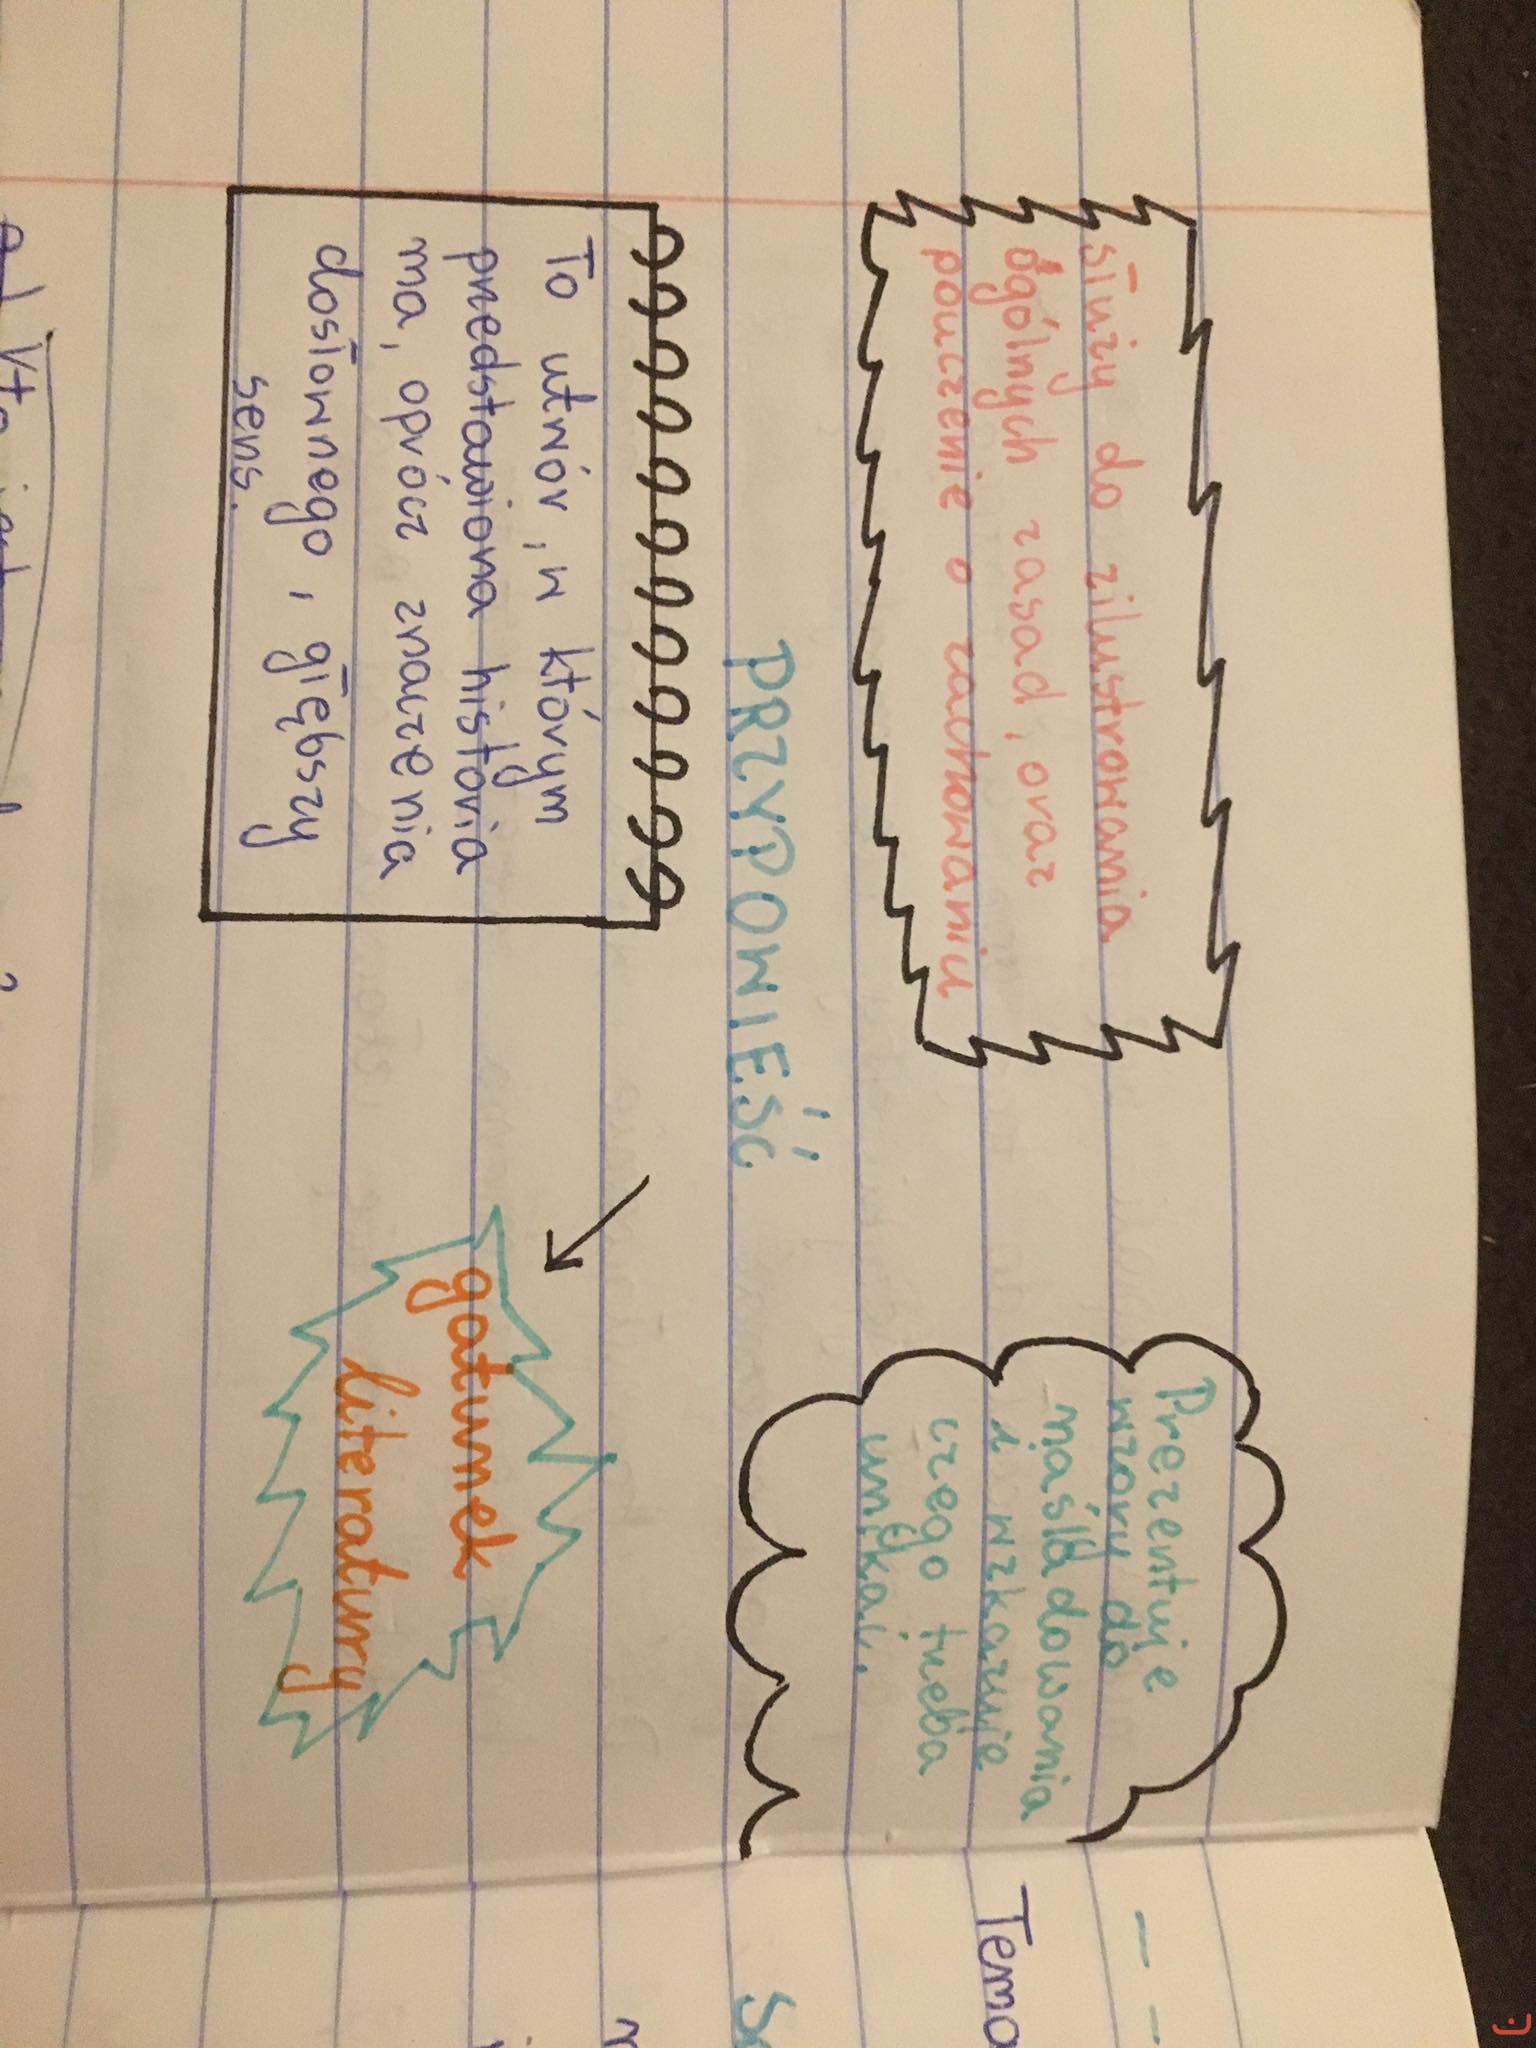 służy do zilustrowania
ogólnych zasad, oraz
pouczenie o zachowaniu
Prezentuje
wzory do
naśladowania
i wzkazuje
czego trzeba
unikać.
PRZYPOWIEŚĆ
To utwór, w którym
przedstawiona historia
ma, oprócz znaczenia
dosłownego, głębszy
sens.
gatunek
literatury
Tema